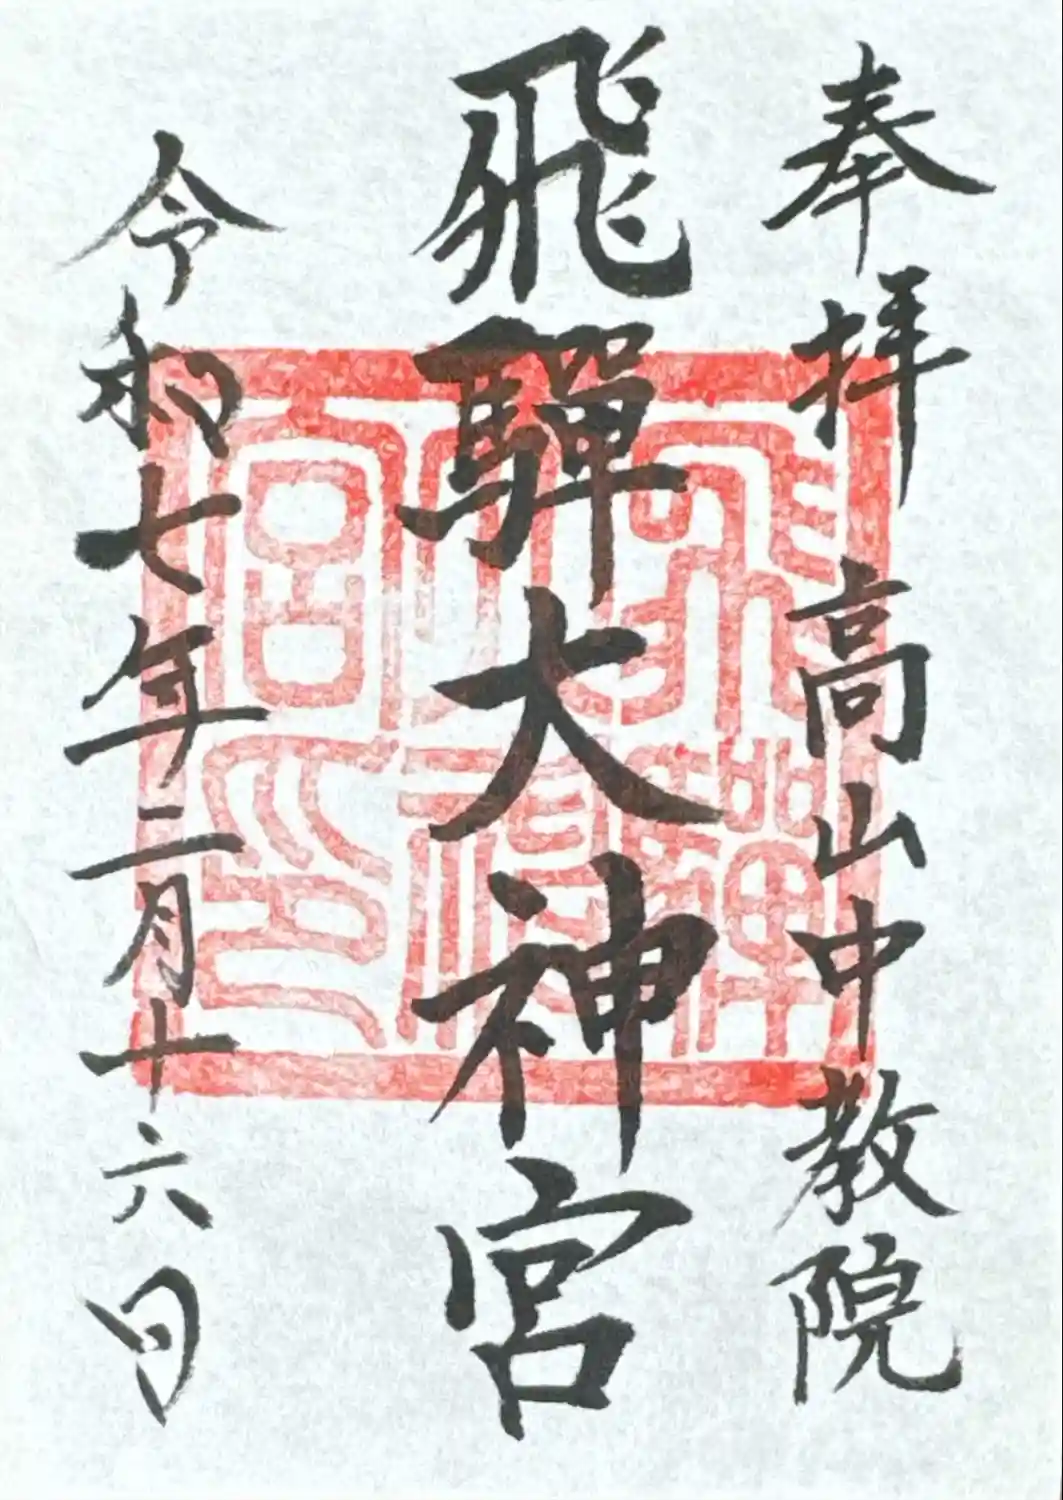 奉拝 高山中教院
飛驒大神宮
令和七年二月十六日
飛驒大神宮印